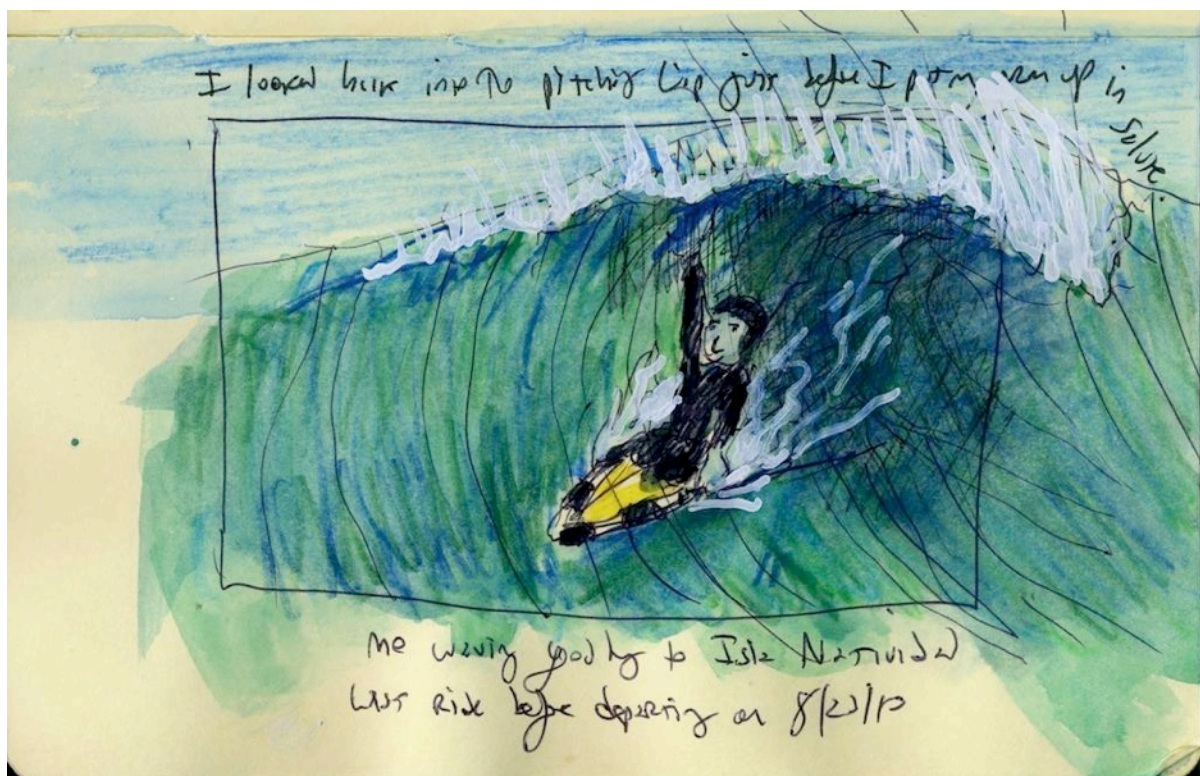 I looked back into the pitching lip just before I put my arm up in salute.
me waving goodby to Isla Natividad
Last Ride before departing on 8/23/13